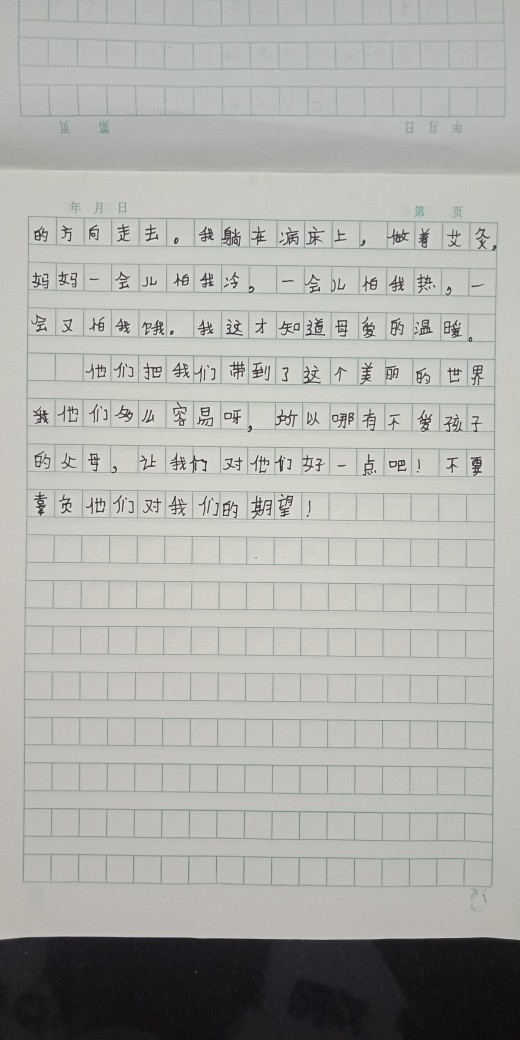 年 月 日
第 页
年 月 日
第 页
的方向走去。我躺在病床上，做着艾灸，
妈妈一会儿怕我冷，一会儿怕我热，一
会又怕我饿。我这才知道母爱的温暖。
他们把我们带到了这个美丽的世界
他们多么容易呀，所以哪有不爱孩子
的父母，让我们对他们好一点吧！不要
辜负他们对我们的期望！